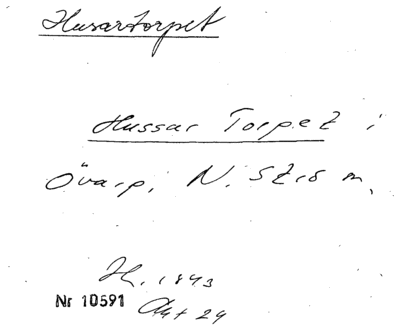 Husartorpet
Hussar Torpet i
Övarp, N. Strö m.
H. 1843
Nr 10591 Akt 24